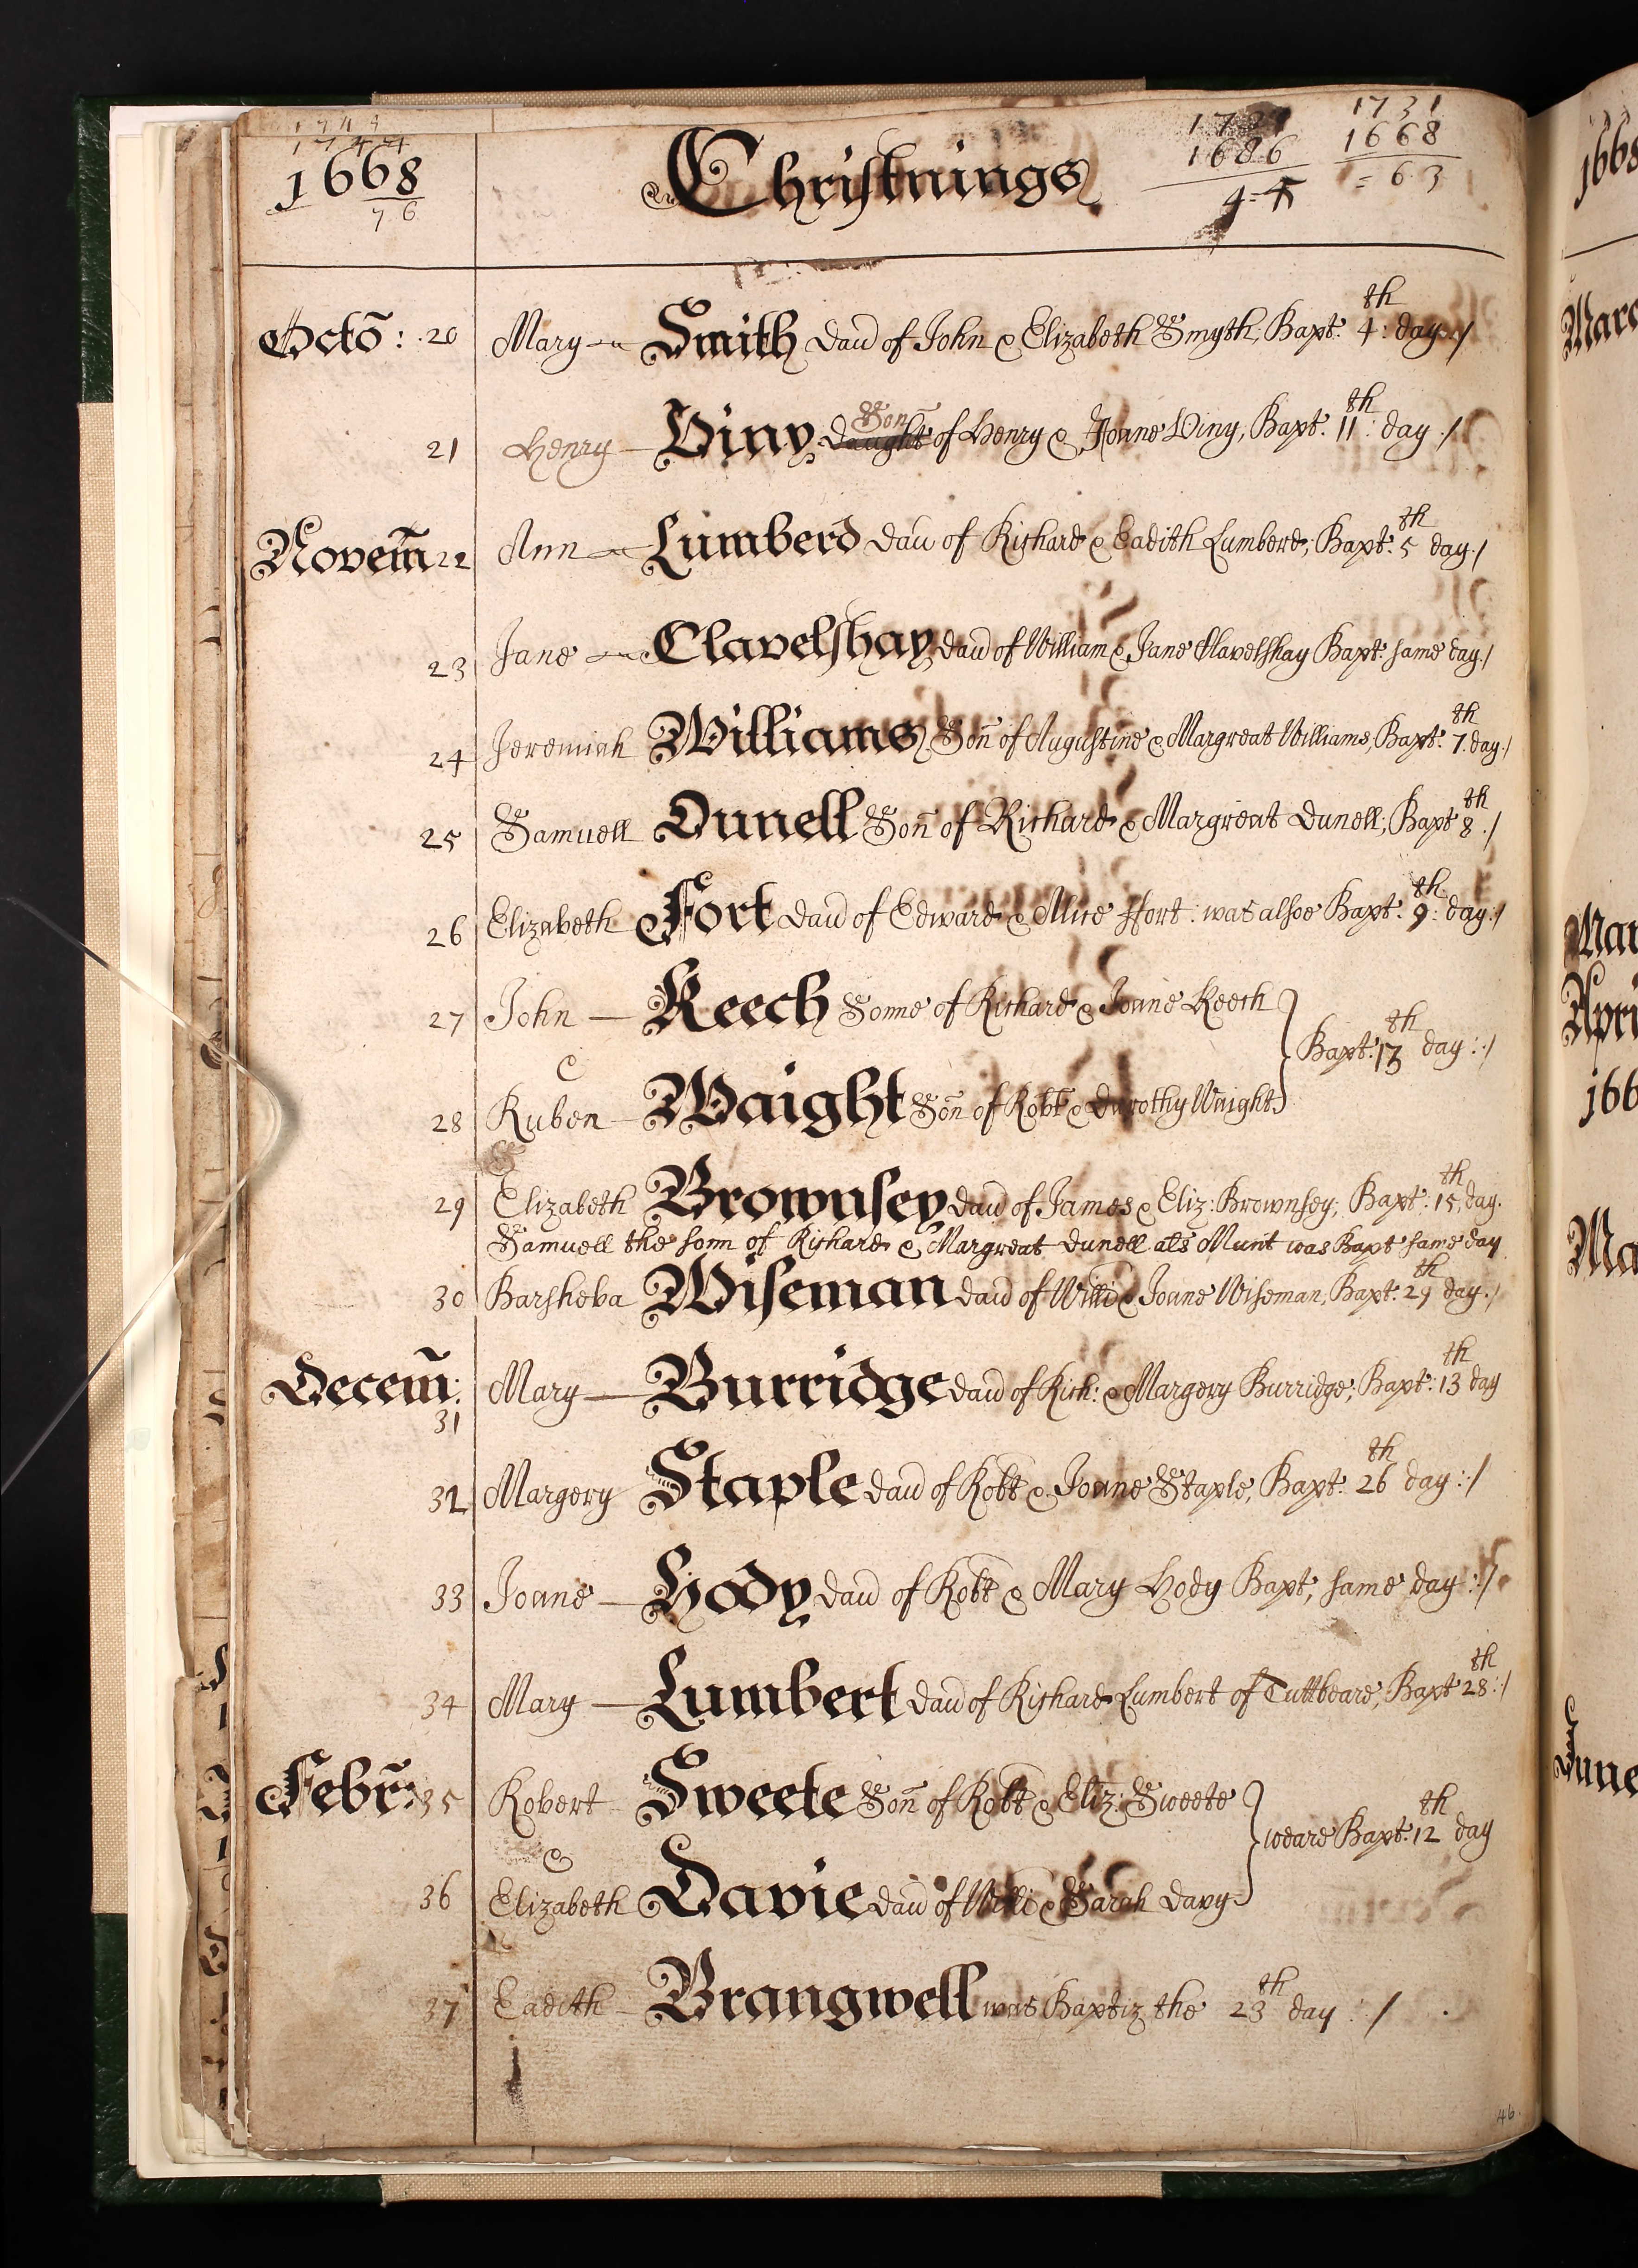 1744
1744
1668
76
Christnings
1731
1686
4=5
1731
1668
= 63
Octo: 20 Mary Smith dau of John & Elizabeth Smyth, Bapt: 4th: day:/
21 Henry Viny daught Son of Henry & Joane Viny, Bapt. 11th: day:/
Novem 22 Ann Lumberd dau of Richard & Eadith Lumberd, Bapt: 5th day:/
23 Jane Clavelshay dau of William & Jane Clavelshay Bapt: same day:/
24 Jeremiah Williams Son of Augustine & Margreat Williams, Bapt: 7th day:/
25 Samuell Dunell Son of Richard & Margreat Dunell, Bapt 8th:/
26 Elizabeth Fort dau of Edward & Alice ffort: was alsoe Bapt: 9th: day:/
27 John Keech Sonne of Richard & Joane Keech
Bapt: 13th day:/
&
28 Ruben Waight Son of Robt & Dorothy Waight
29 Elizabeth Brownsey dau of James & Eliz: Brownsey, Bapt: 15th, day.
Samuell the sonn of Richard & Margreat Dunell als Munt was Bapt same day
30 Barsheba Wiseman dau of Willi & Joane Wiseman, Bapt: 29th day:/
Decem:
31 Mary Burridge dau of Rich: & Margery Burridge, Bapt: 13th day
32 Margery Staple dau of Robt & Joane Staple, Bapt: 26th day:/
33 Joane Hody dau of Robt & Mary Hody Bapt, same day:/
34 Mary Lumbert dau of Richard Lumbert of Tuttbeare, Bapt 28th:/
Febr: 35 Robert Sweete Son of Robt & Eliz: Sweete
weare Bapt: 12th day
&
36 Elizabeth Davie dau of Willi & Sarah Davy
37 Eadith Brangwell was Baptiz the 23th day:/
46
1668
Marc
Mar
Apri
166
Ma
June